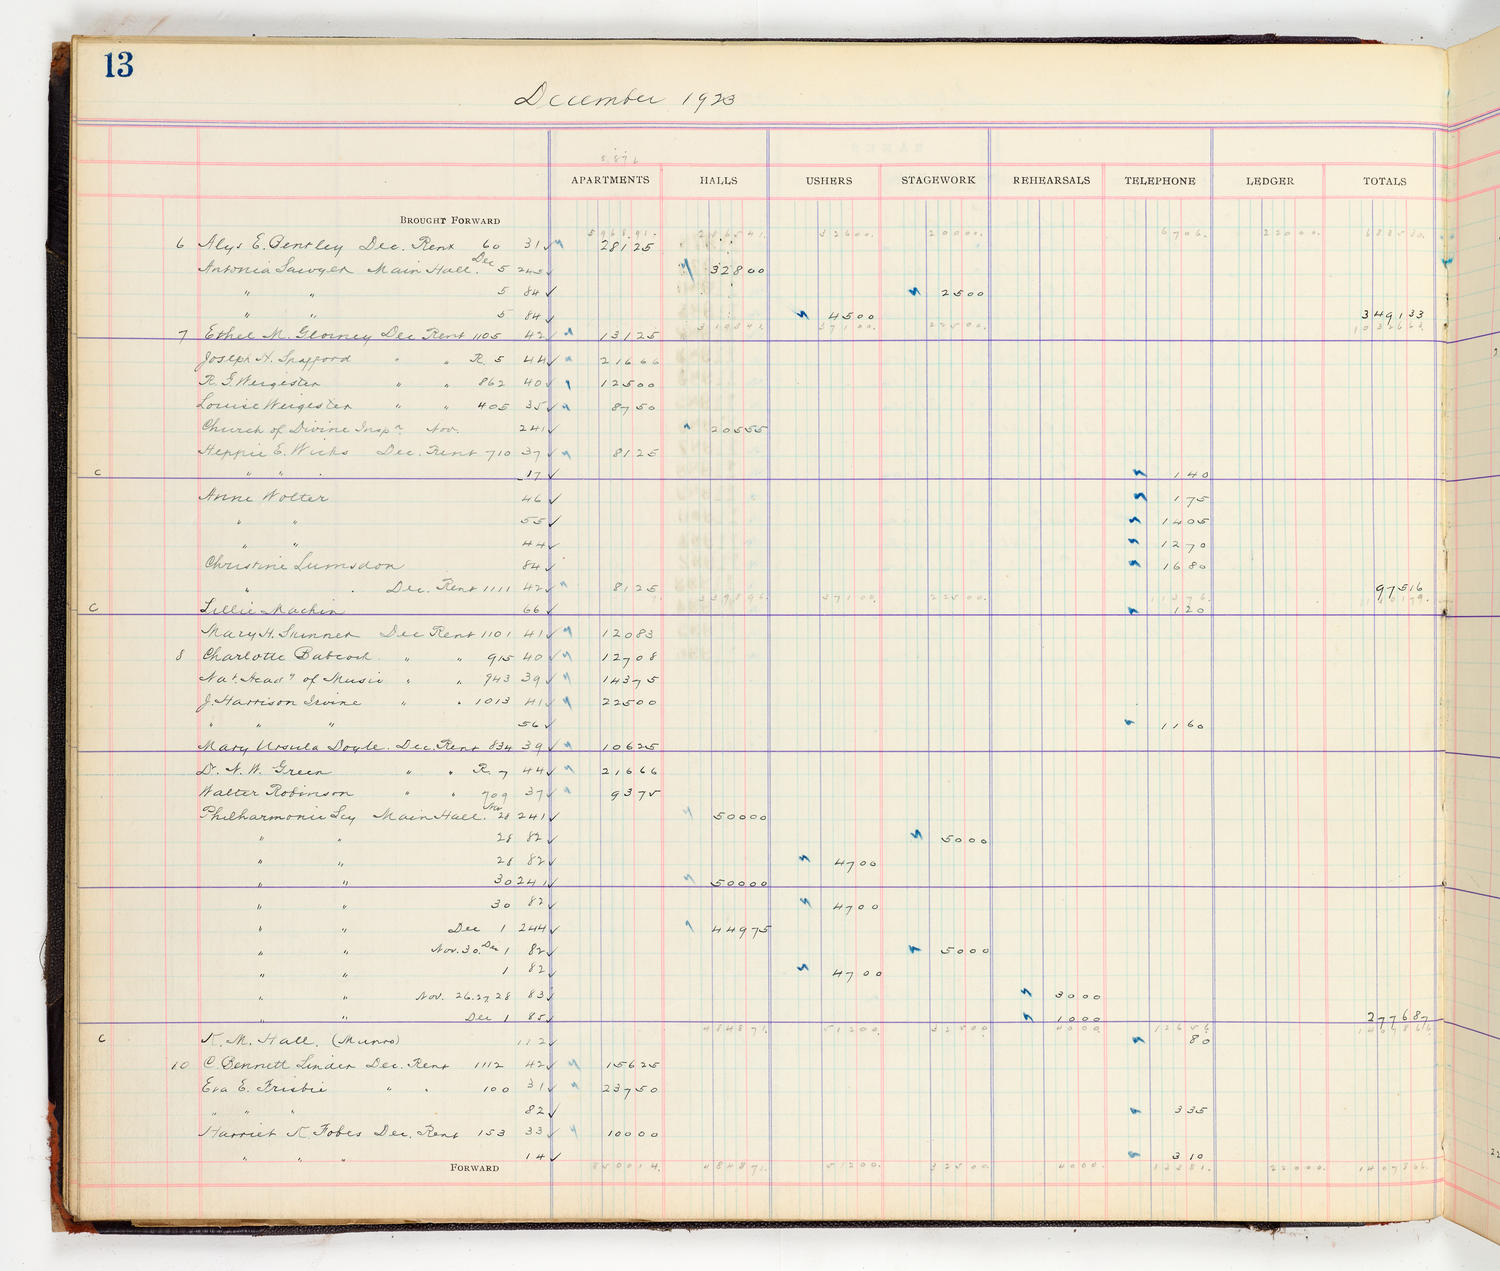 13
December 1923
5,876
APARTMENTS HALLS USHERS STAGEWORK REHEARSALS TELEPHONE LEDGER TOTALS
BROUGHT FORWARD 32600. 20000. 6706. 22000.
6 Alys E. Bentley Dec. Rent 60 31 ✓ 28125
Antonia Sawyer Main Hall. Dec 5 245 ✓ 32800
" " 5 84 ✓ 2500
" " 5 84 ✓ 4500 349133
37100. 22500.
7 Ethel M. Gloiney Dec Rent 1105 42 ✓ 13125
Joseph H. Spafford " " R. 5 44 ✓ 21666
R. G. Weigester " " 862 40 ✓ 12500
Louise Weigester " " 405 35 ✓ 8750
Church of Divine Insp'n Nov. 241 ✓ 20555
Heppie E. Wicks Dec. Rent 710 37 ✓ 8125
C " " . 17 ✓ 140
Anne Wolter 46 ✓ 175
" " 55 ✓ 1405
" " 44 ✓ 1270
Christine Lumsdon 84 ✓ 1680
" . Dec. Rent 1111 42 ✓ 8125 97516
339896. 37100. 22500. 11376.
C Lillie Machin 66 ✓ 120
Mary H. Sumner Dec Rent 1101 41 ✓ 12083
8 Charlotte Babcock. " " 915 40 ✓ 12708
Nat. Acad'y of Music " " 943 39 ✓ 14375
J. Harrison Irvine " " 1013 41 ✓ 22500
" " " 56 ✓ 1160
Mary Ursula Doyle. Dec. Rent 834 39 ✓ 10625
Dr. N. W. Green " " R. 7 44 ✓ 21666
Walter Robinson " " 709 37 ✓ 9375
Philharmonic Scy Main Hall. Nov. 28 241 ✓ 50000
" " 28 82 ✓ 5000
" " 28 82 ✓ 4700
" " 30 241 ✓ 50000
" " 30 82 ✓ 4700
" " Dec 1 244 ✓ 44975
" " Nov. 30. Dec 1 82 ✓ 5000
" " 1 82 ✓ 4700
" " Nov. 26.27.28 83 ✓ 3000
" " Dec 1 85 ✓ 1000 277687
484871. 51200. 32500. 4000. 12656.
C K. M. Hall. (Munro) 112 ✓ 80
10 C. Bennett Linder Dec. Rent 1112 42 ✓ 15625
Eva E. Frisbie " " 100 31 ✓ 23750
" " " 82 ✓ 335
Harriet K. Fobes Dec. Rent 153 33 ✓ 10000
" " " 14 ✓ 310
FORWARD 850014. 484871. 51200. 32500. 4000. 13381. 22000. 1407866.